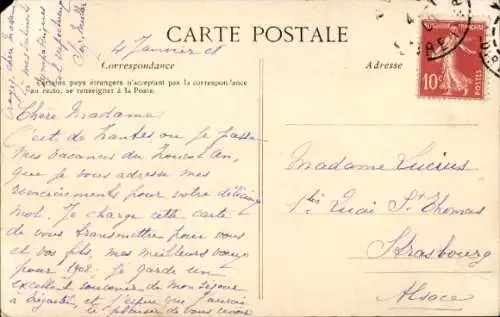 CARTE POSTALE
4 Janvier 08
Correspondance
Adresse
Certains pays étrangers n'acceptent pas la correspondance
au recto, se renseigner à la Poste.
Chère Madame
C'est de Nantes où je passe
mes vacances du Nouvel An,
que je vous adresse mes
remerciements pour votre
mot. Je charge cette carte
de vous transmettre pour vous
et vos fils, mes meilleurs vœux
pour 1908. Je garde un
excellent souvenir de mon séjour
à et j'espère que j'aurai
le plaisir de vous revoir
Croyez, chère Madame
à mes sentiments
10c
POSTES
Madame Lucius
1 bis Quai St Thomas
Strasbourg
Alsace